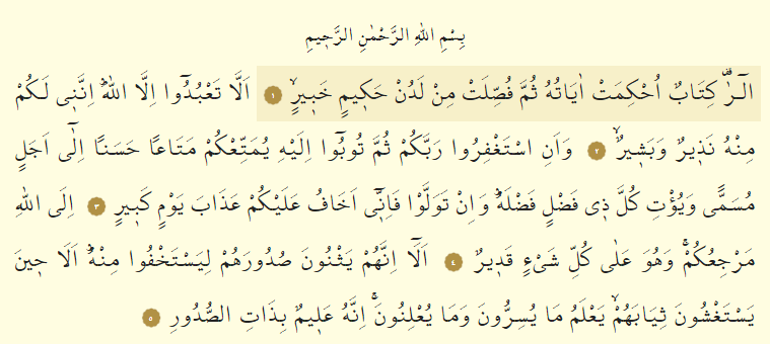 بِسْمِ اللهِ الرَّحْمٰنِ الرَّح۪يمِ
الٓـرٰ۠ كِتَابٌ اُحْكِمَتْ اٰيَاتُهُ ثُمَّ فُصِّلَتْ مِنْ لَدُنْ حَك۪يمٍ خَب۪يرٍۙ ﴿١﴾ اَلَّا تَعْبُدُٓوا اِلَّا اللهَۜ اِنَّن۪ي لَكُمْ
مِنْهُ نَذ۪يرٌ وَبَش۪يرٌۙ ﴿٢﴾ وَاَنِ اسْتَغْفِرُوا رَبَّكُمْ ثُمَّ تُوبُٓوا اِلَيْهِ يُمَتِّعْكُمْ مَتَاعًا حَسَنًا اِلٰٓى اَجَلٍ
مُسَمًّى وَيُؤْتِ كُلَّ ذ۪ي فَضْلٍ فَضْلَهُۜ وَاِنْ تَوَلَّوْا فَاِنّ۪ٓي اَخَافُ عَلَيْكُمْ عَذَابَ يَوْمٍ كَب۪يرٍ ﴿٣﴾ اِلَى اللهِ
مَرْجِعُكُمْۚ وَهُوَ عَلٰى كُلِّ شَيْءٍ قَد۪يرٌ ﴿٤﴾ اَلَٓا اِنَّهُمْ يَثْنُونَ صُدُورَهُمْ لِيَسْتَخْفُوا مِنْهُۜ اَلَا ح۪ينَ
يَسْتَغْشُونَ ثِيَابَهُمْۙ يَعْلَمُ مَا يُسِرُّونَ وَمَا يُعْلِنُونَۚ اِنَّهُ عَل۪يمٌ بِذَاتِ الصُّدُورِ ﴿٥﴾